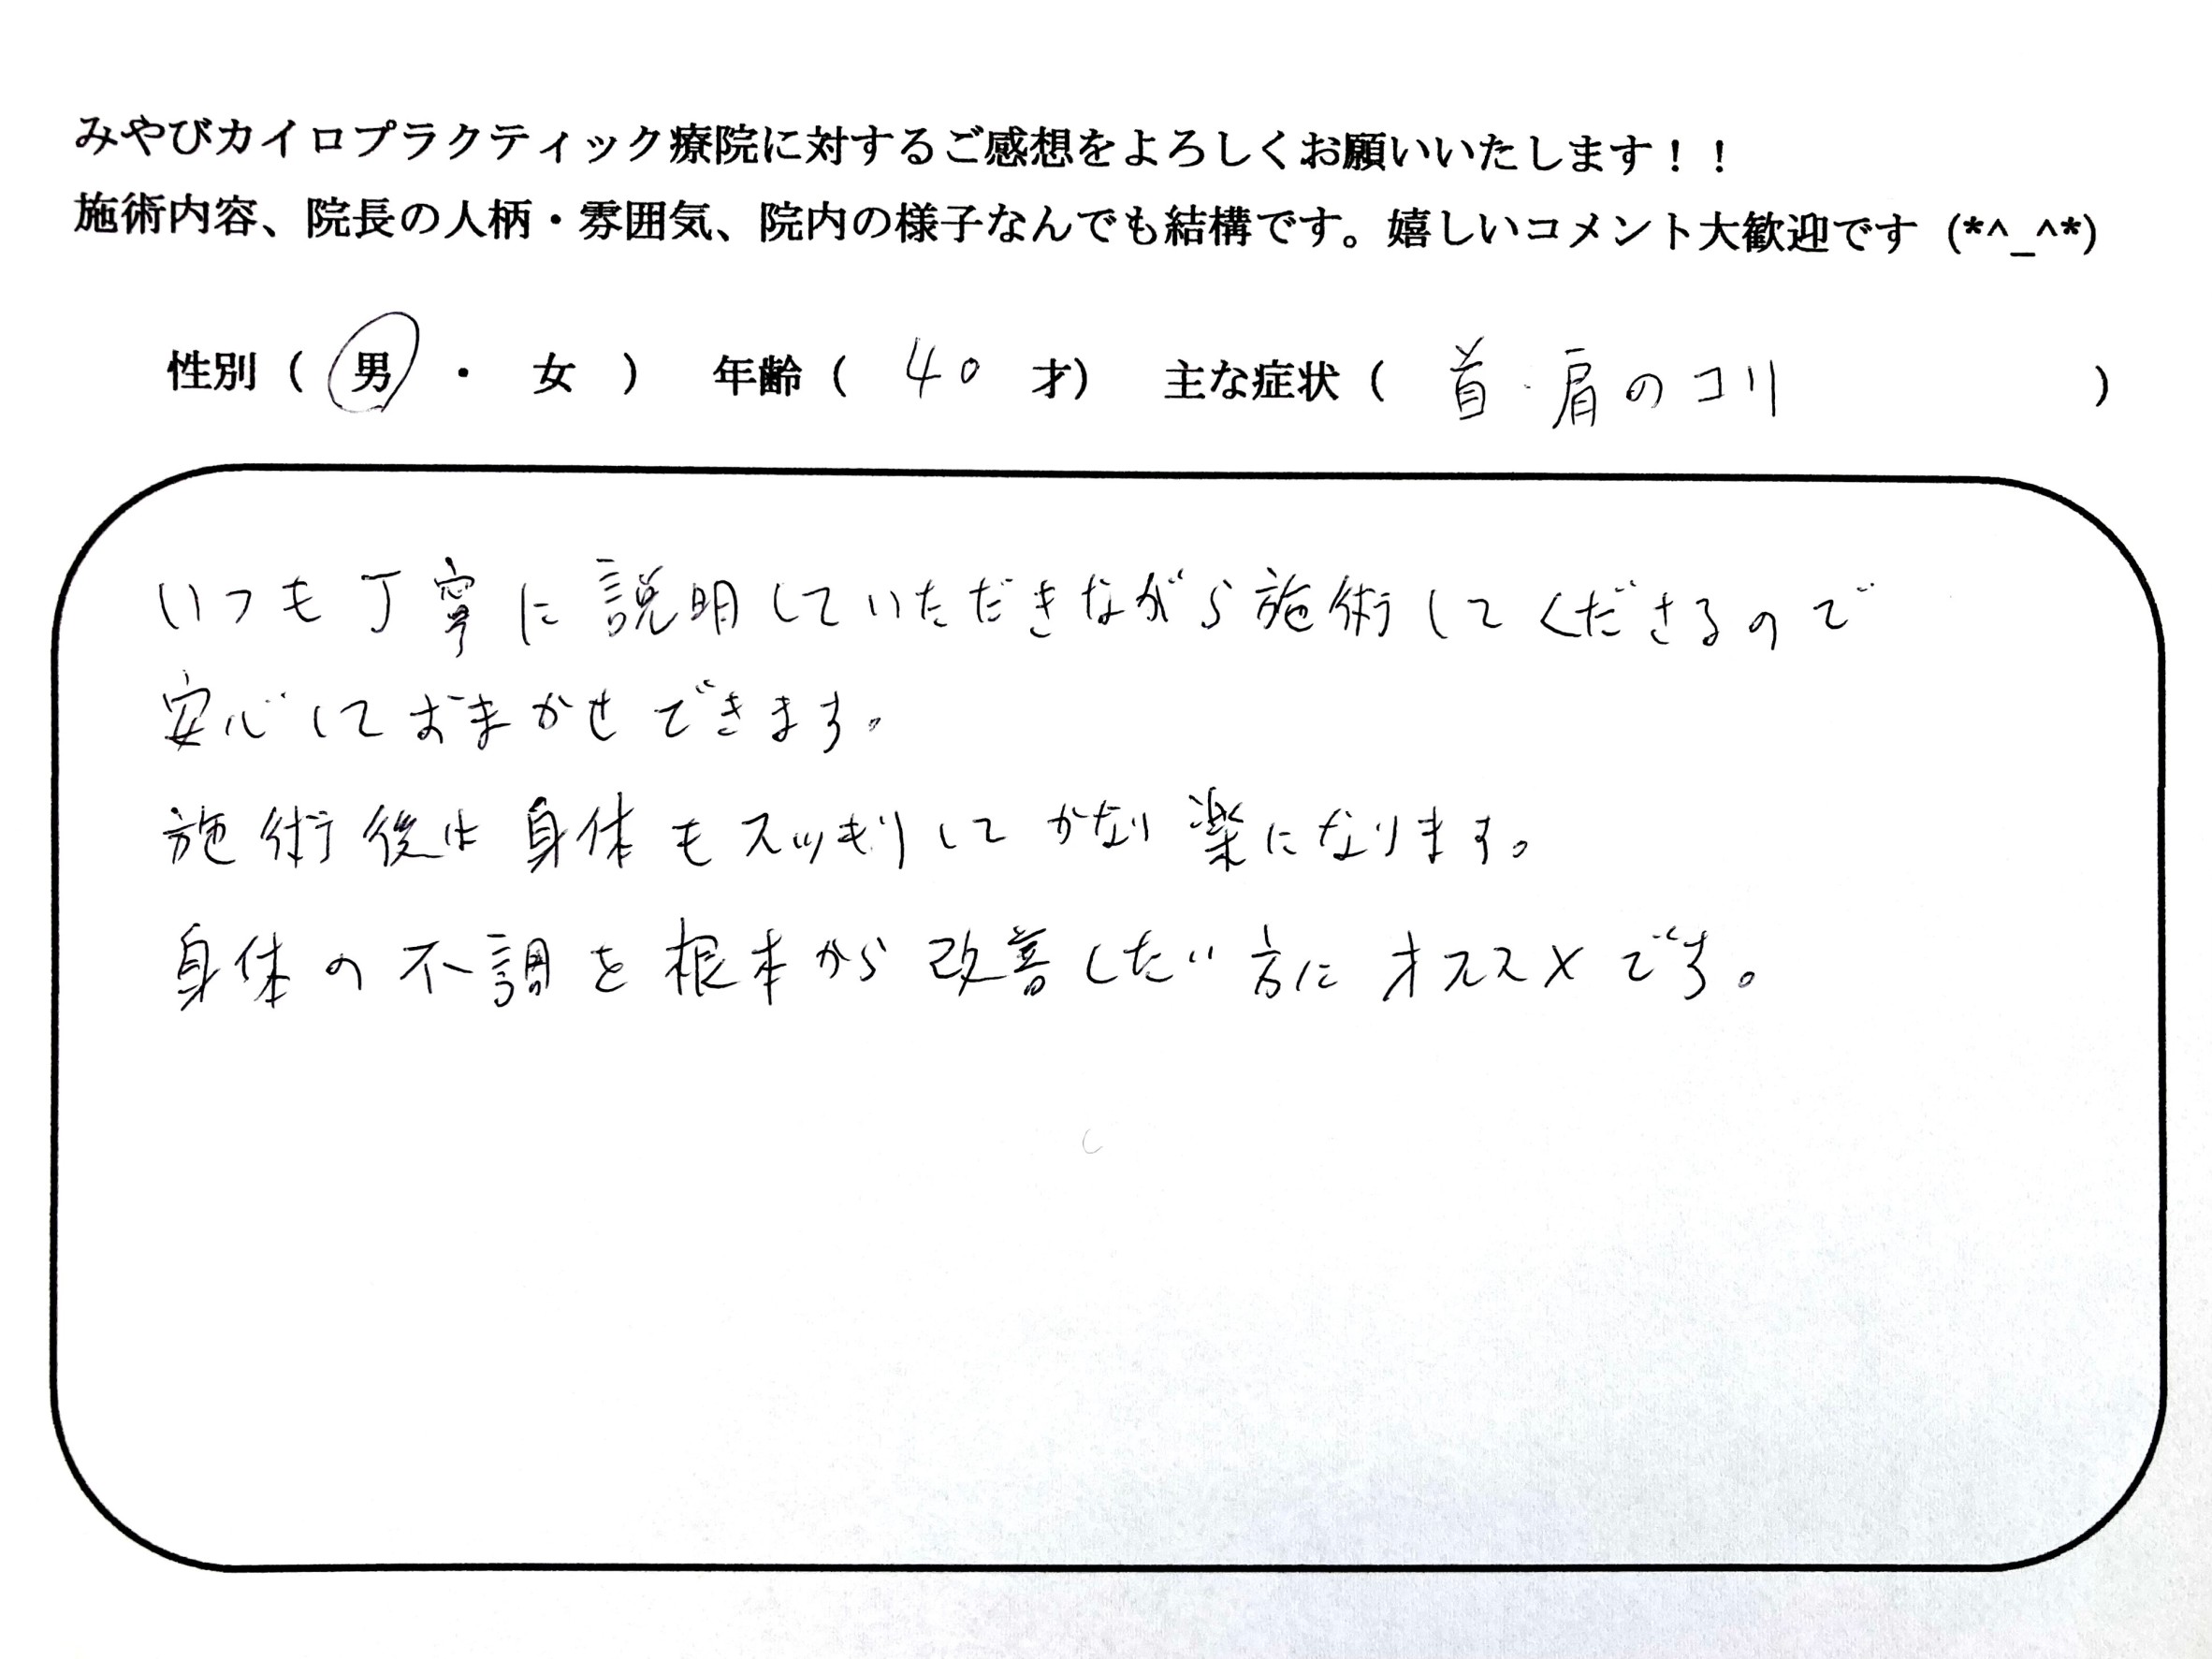 みやびカイロプラクティック療院に対するご感想をよろしくお願いいたします！！
施術内容、院長の人柄・雰囲気、院内の様子なんでも結構です。嬉しいコメント大歓迎です (*^_^*)
性別（ 男 ・ 女 ） 年齢（ 40 才） 主な症状（ 首・肩のコリ ）
いつも丁寧に説明していただきながら施術してくださるので
安心しておまかせできます。
施術後は身体もスッキリしてかなり楽になります。
身体の不調を根本から改善したい方にオススメです。